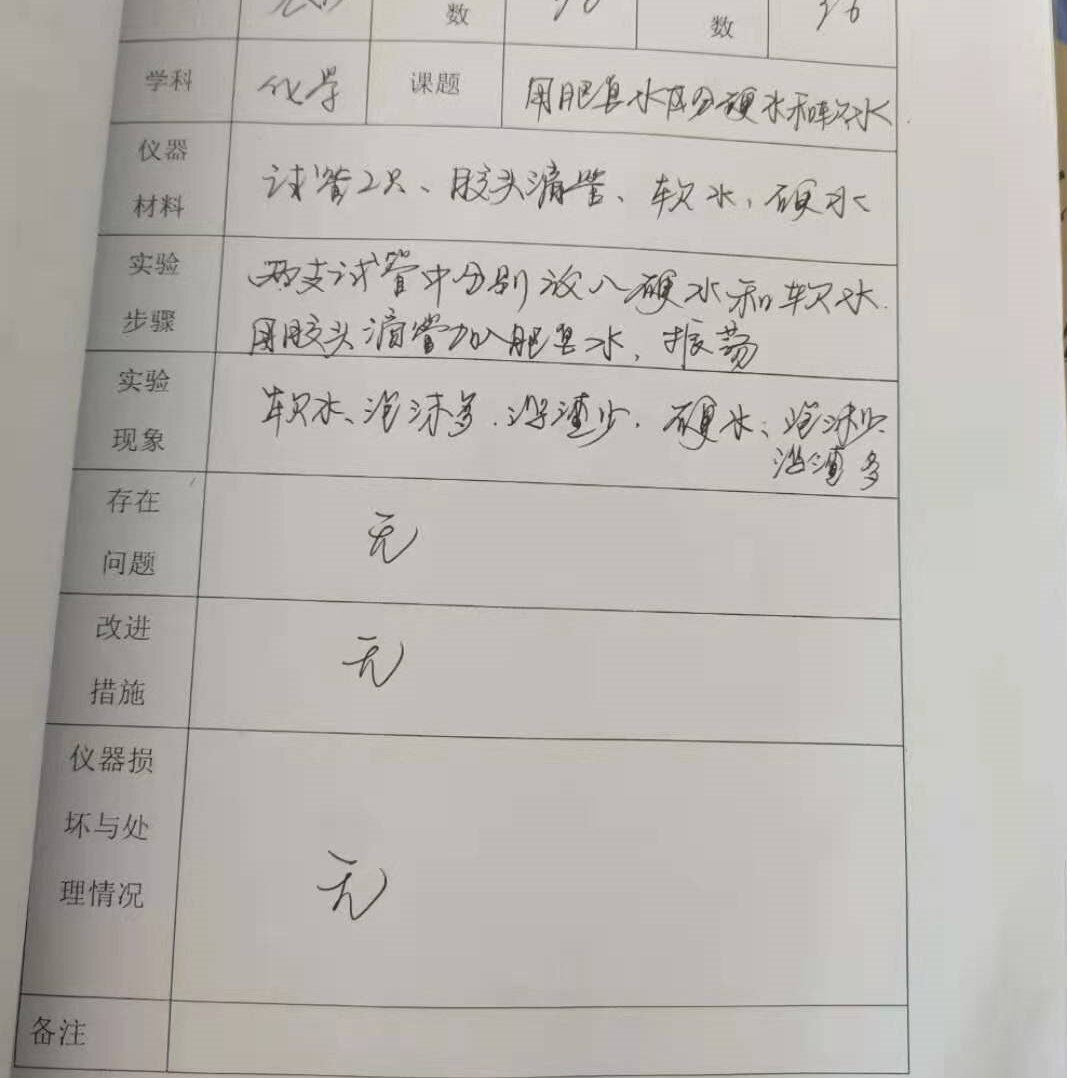 数
数
学科 化学 课题 用肥皂水区分硬水和软水
仪器
材料
试管2只、胶头滴管、软水、硬水
实验
步骤
两支试管中分别放入硬水和软水.
用胶头滴管加入肥皂水，振荡
实验
现象
软水、泡沫多.浮渣少. 硬水、泡沫少
浮渣多
存在
问题
无
改进
措施
无
仪器损
坏与处
理情况
无
备注